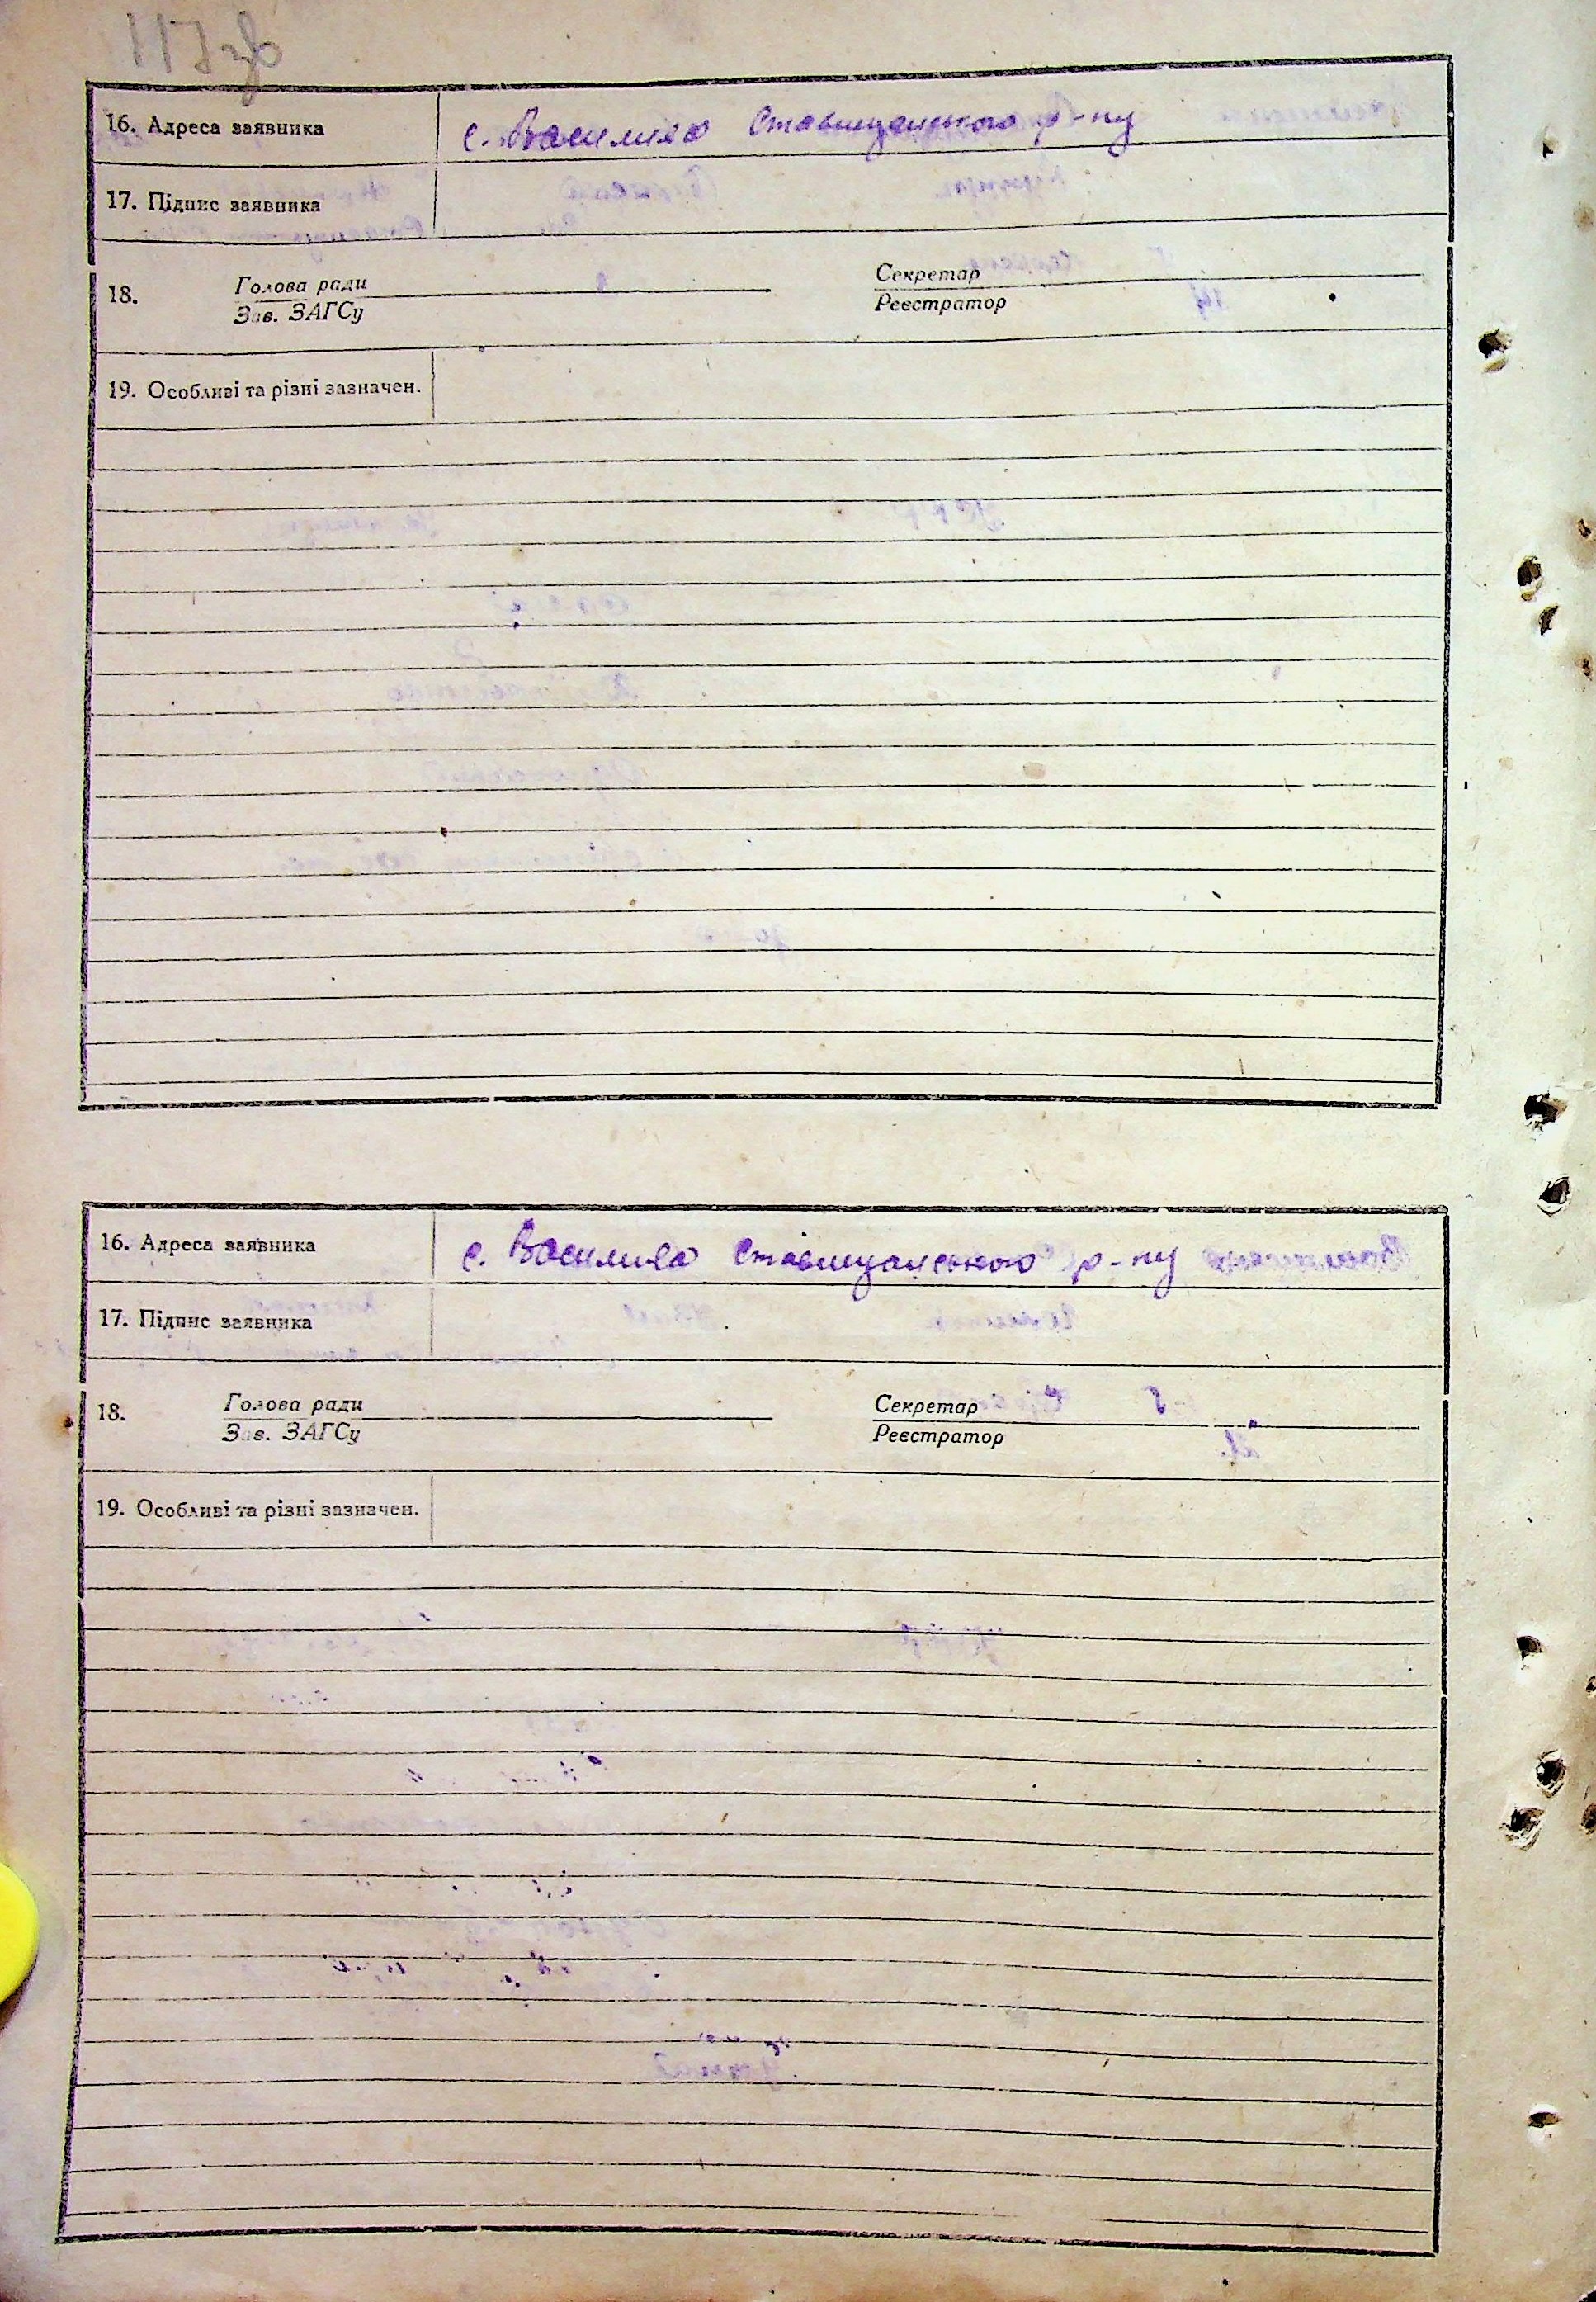 117зв
16. Адреса заявника с. Василиха Ставищанського р-ну
17. Підпис заявника
18. Голова ради Секретар
Зав. ЗАГСу Реєстратор
19. Особливі та різні зазначен.
16. Адреса заявника с. Василиха Ставищанського р-ну
17. Підпис заявника
18. Голова ради Секретар
Зав. ЗАГСу Реєстратор
19. Особливі та різні зазначен.